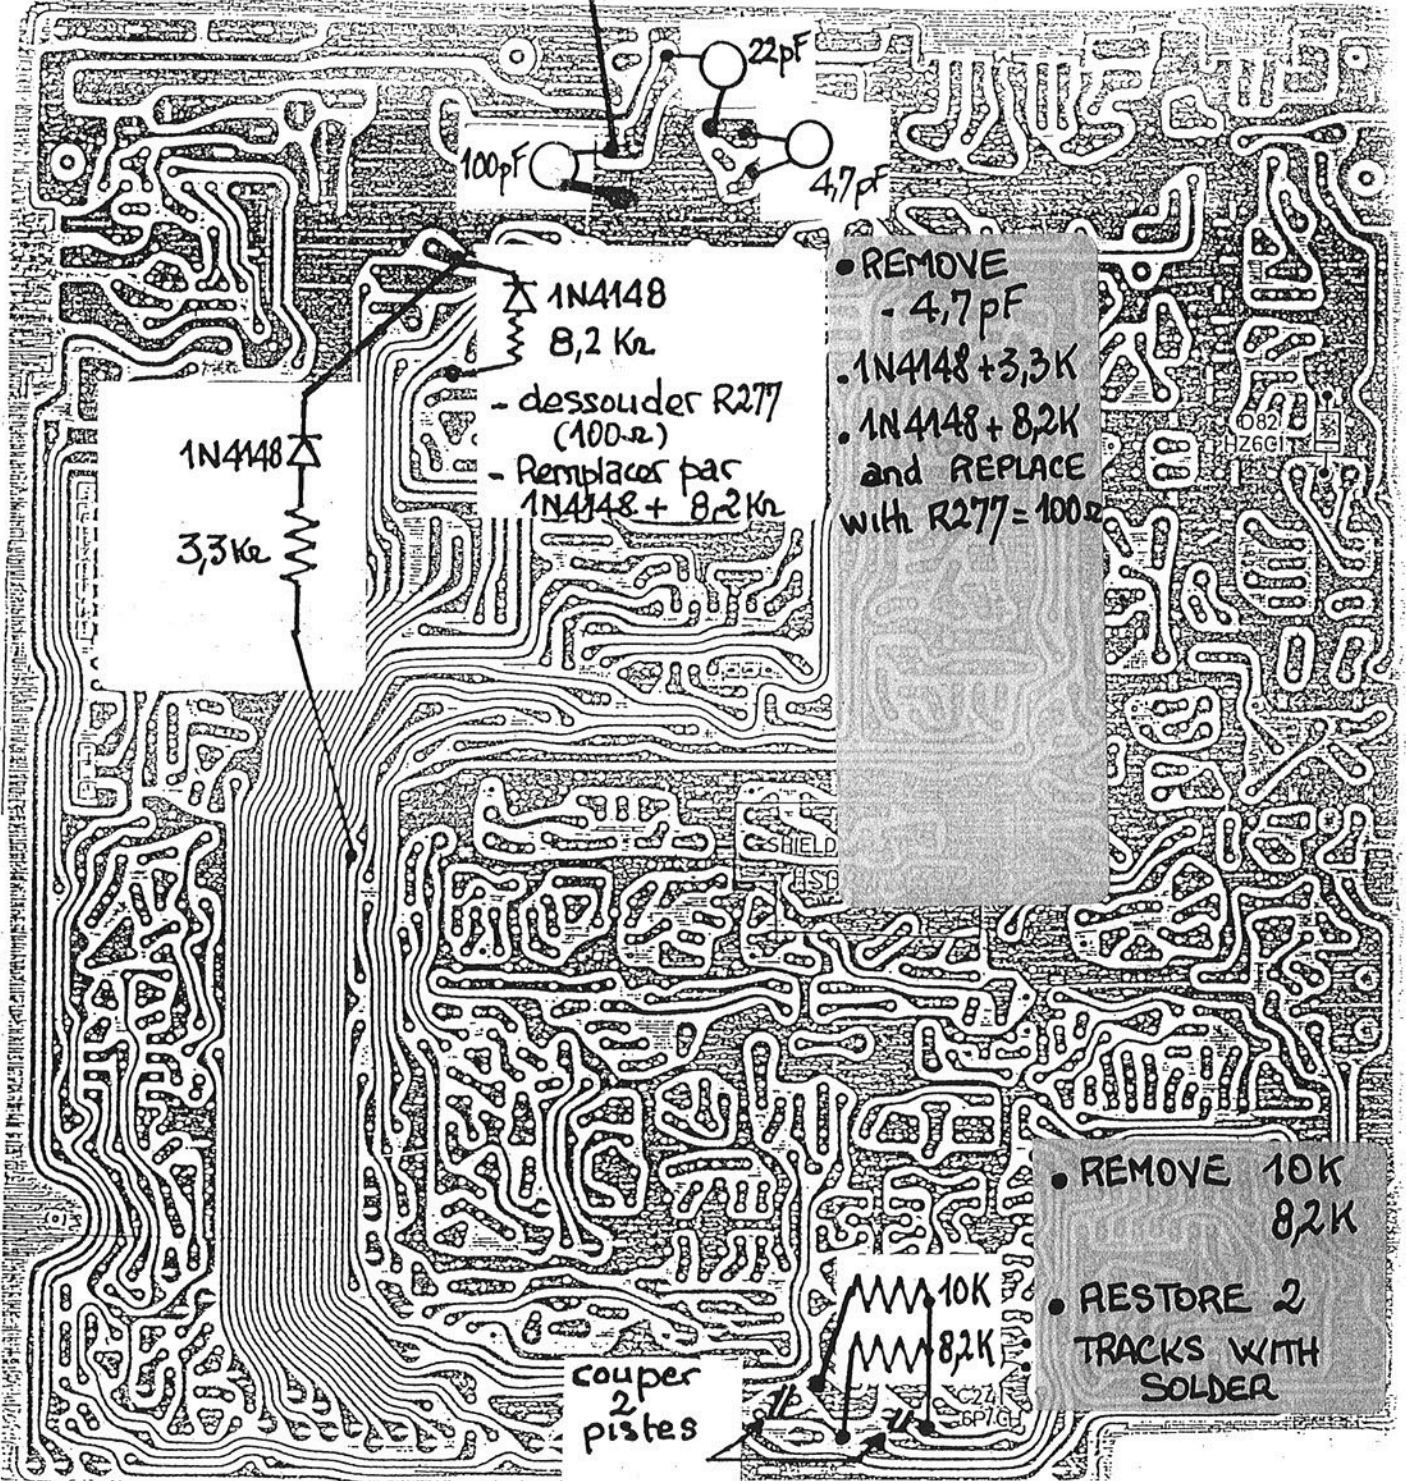 22pF
100pF
4,7pF
1N4148
8,2 KΩ
- dessouder R277
(100Ω)
- Remplacer par
1N4148 + 8,2KΩ
1N4148
3,3KΩ
• REMOVE
- 4,7pF
. 1N4148 + 3,3K
. 1N4148 + 8,2K
and REPLACE
with R277 = 100Ω
D82
HZ6C1
SHIELD
• REMOVE 10K
8,2K
• RESTORE 2
TRACKS WITH
SOLDER
10K
8,2K
couper
2
pistes